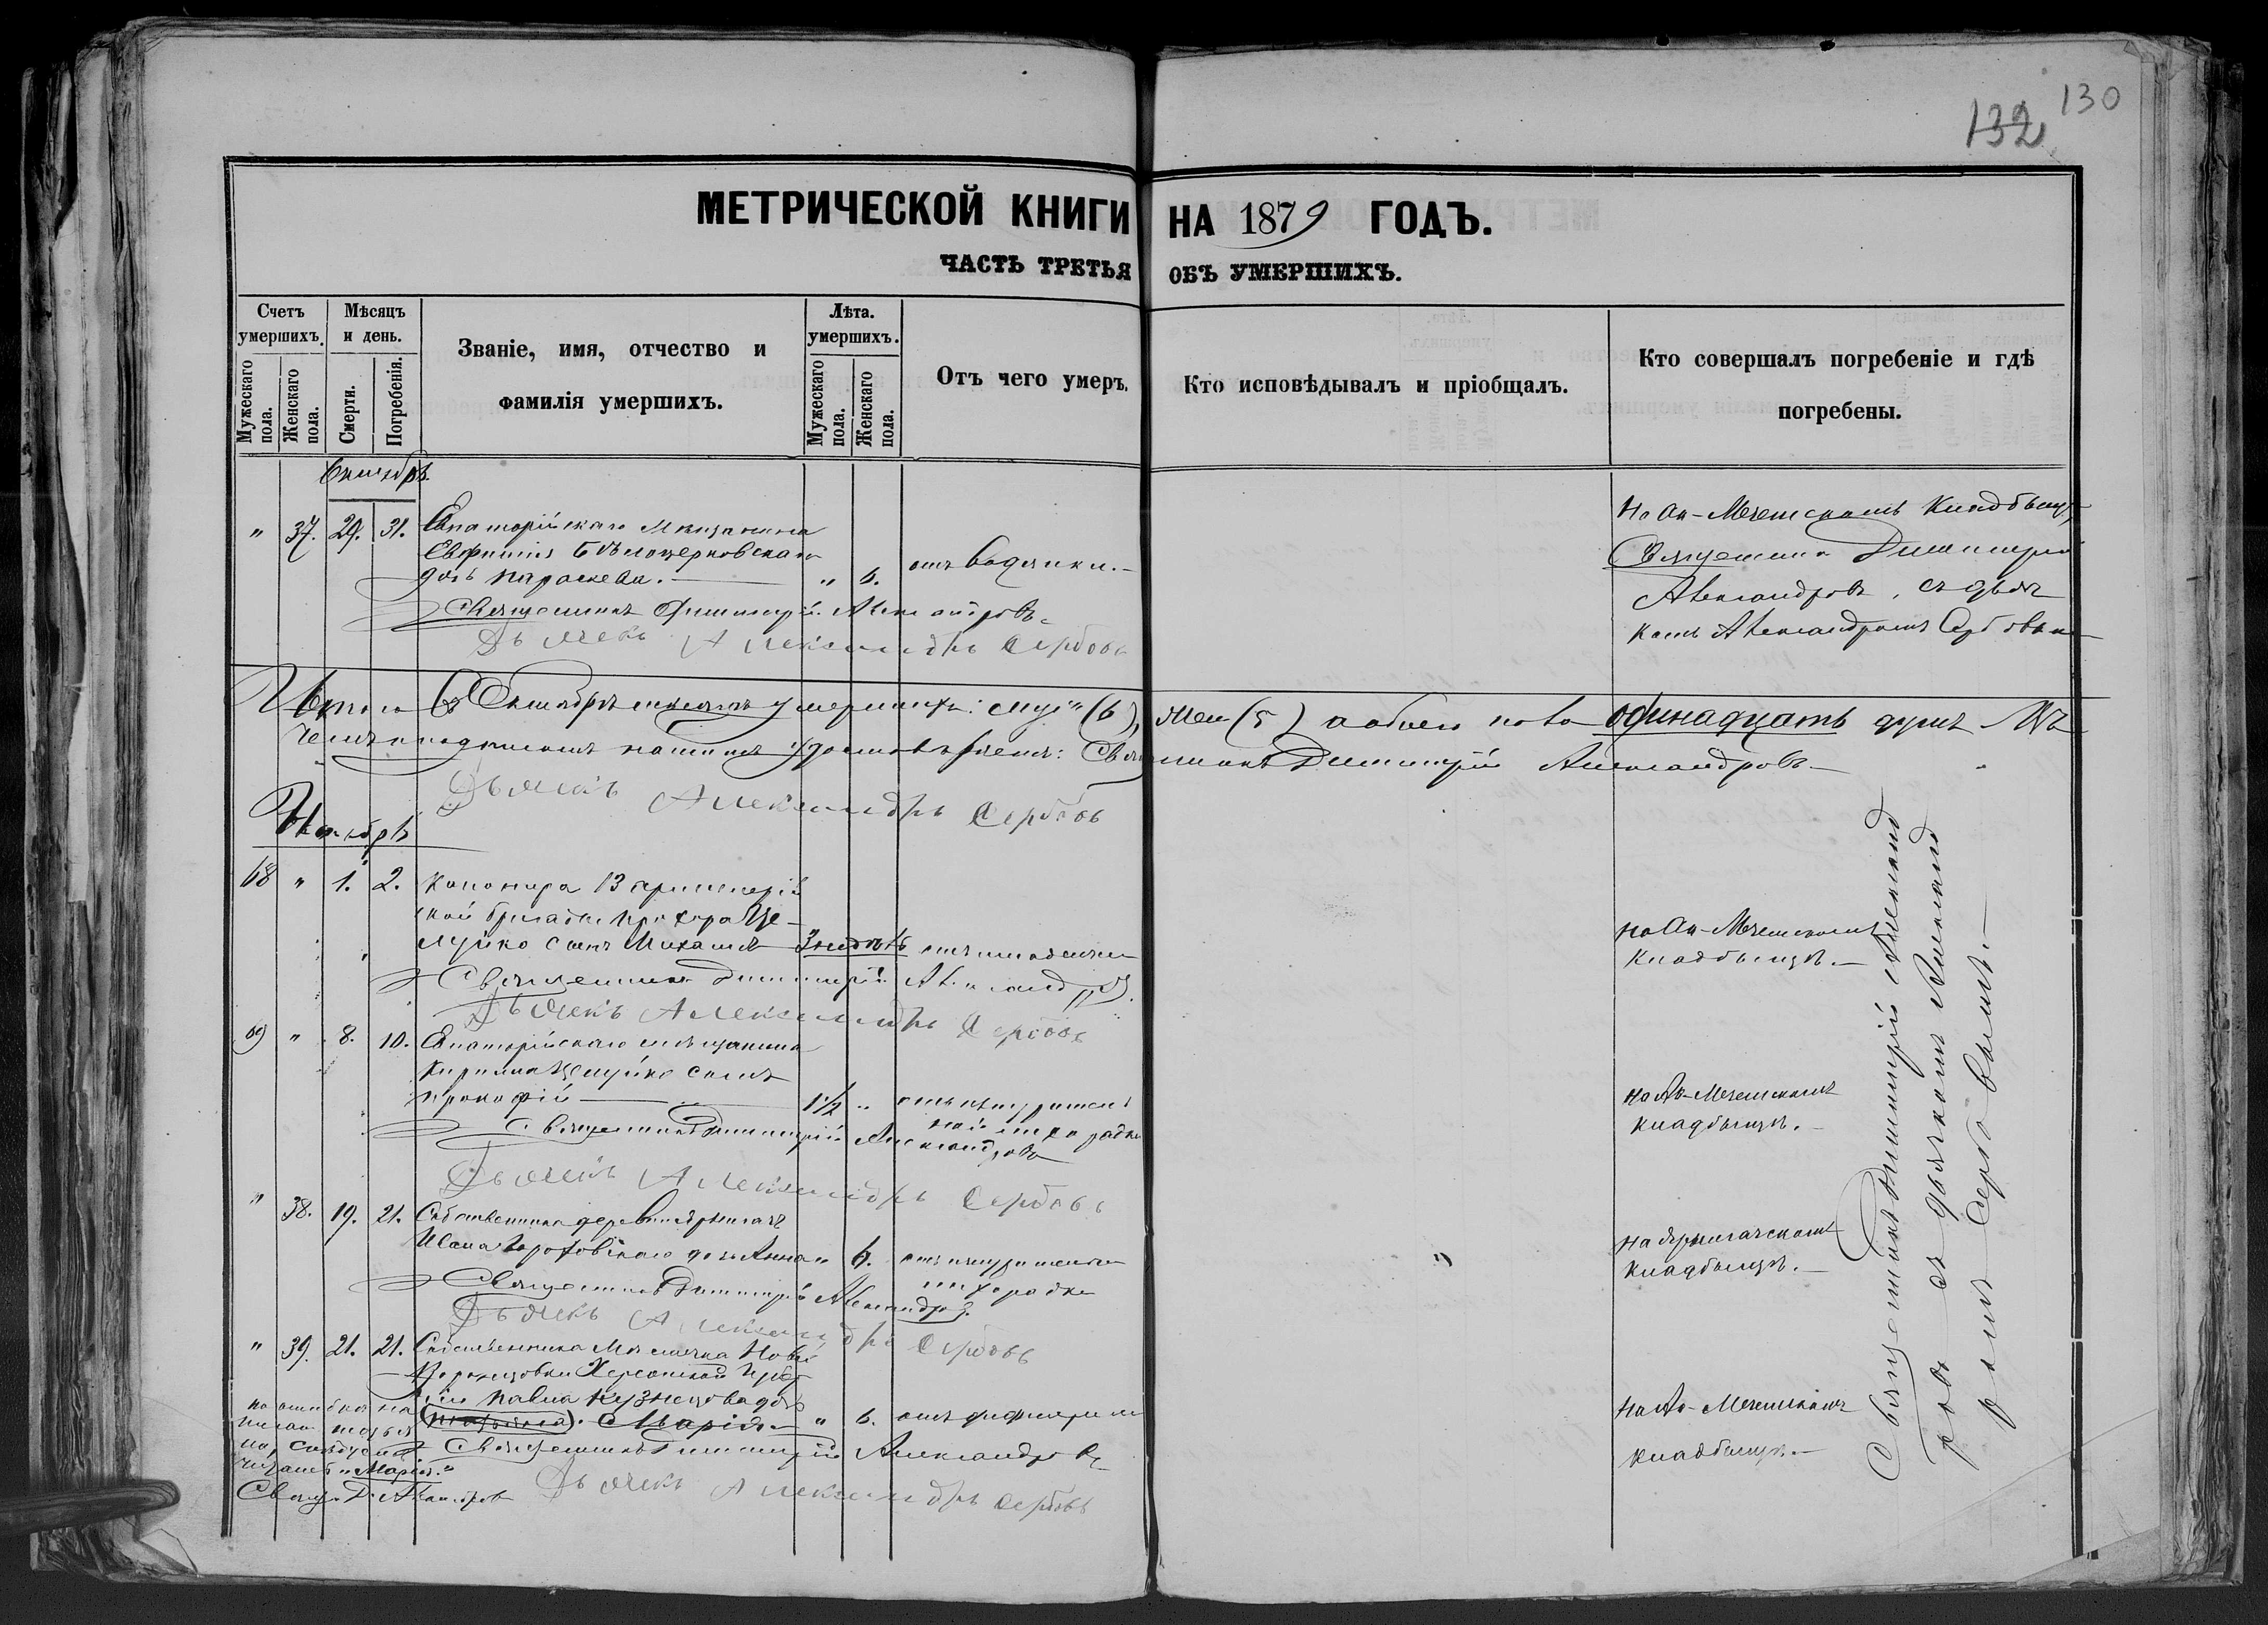 132 130
МЕТРИЧЕСКОЙ КНИГИ НА 1879 ГОДЪ.
ЧАСТЬ ТРЕТЬЯ ОБЪ УМЕРШИХЪ.
Счетъ умершихъ.
Мужескаго пола.
Женскаго пола.
Мѣсяцъ и день.
Смерти.
Погребенія.
Званіе, имя, отчество и
фамилія умершихъ.
Лѣта. умершихъ.
Мужескаго пола.
Женскаго пола.
Отъ чего умеръ.
Кто исповѣдывалъ и пріобщалъ.
Кто совершалъ погребеніе и гдѣ
погребены.
Октябрь.
" 37. 29. 31. Евпаторійскаго Мѣщанина
Евфимія Бѣлоцерковскаго
дочь Параскева. " 6. отъ Водянки.
Священникъ Димитрій Александровъ
Дьячекъ Александръ Сербовъ
На Ак-Мечетскомъ Кладбищѣ,
Священникъ Димитрій
Александровъ, съ дьяч
комъ Александромъ Сербовым
Итого въ Октябрѣ мѣсяцѣ умершихъ: муж (6), жен (5) а обоего пола одинадцать душъ Въ
чемъ подписомъ нашимъ удостовѣряемъ: Священникъ Димитрій Александровъ
Дьячекъ Александръ Сербовъ
Ноябрь
68 " 1. 2. Канонира 13 артиллерій
ской бригады Прохора Це-
луйко сынъ Михаилъ 3 недѣль отъ младенчес
Священникъ Димитрій Александровъ.
Дьячекъ Александръ Сербовъ
на Ак-Мечетскомъ
Кладбищѣ.
69 " 8. 10. Евпаторійскаго мѣщанина
Кирилла Целуйко сынъ
Прокофій 1 1/2 " отъ изнуритель
ной лихорадки
Священникъ Димитрій Александровъ
Дьячекъ Александръ Сербовъ
на Ак-Мечетскомъ
кладбищѣ.
" 38. 19. 21. Собственника деревни Ярылгачъ
Ивана Гороховскаго дочь Анна " 6. отъ изнурительной
лихорадки
Священникъ Димитрій Александровъ.
Дьячекъ Александръ Сербовъ
на Ярылгачскомъ
Кладбищѣ.
" 39. 21. 21. Собственника Мѣстечка Новой
Воронцовки Херсонской Губер
ніи Павла Кузнецова дочь
Марія " 6. отъ дифтерита
Священникъ Димитрій Александровъ
Дьячекъ Александръ Сербовъ
на Ак-Мечетскомъ
Кладбищѣ.
по ошибкѣ на
писано
но слѣдуетъ
читать "Марія."
Свящ. Д. Александров
Священникъ Димитрій Александ
ровъ съ дьячкомъ Александ
ромъ Сербовымъ.